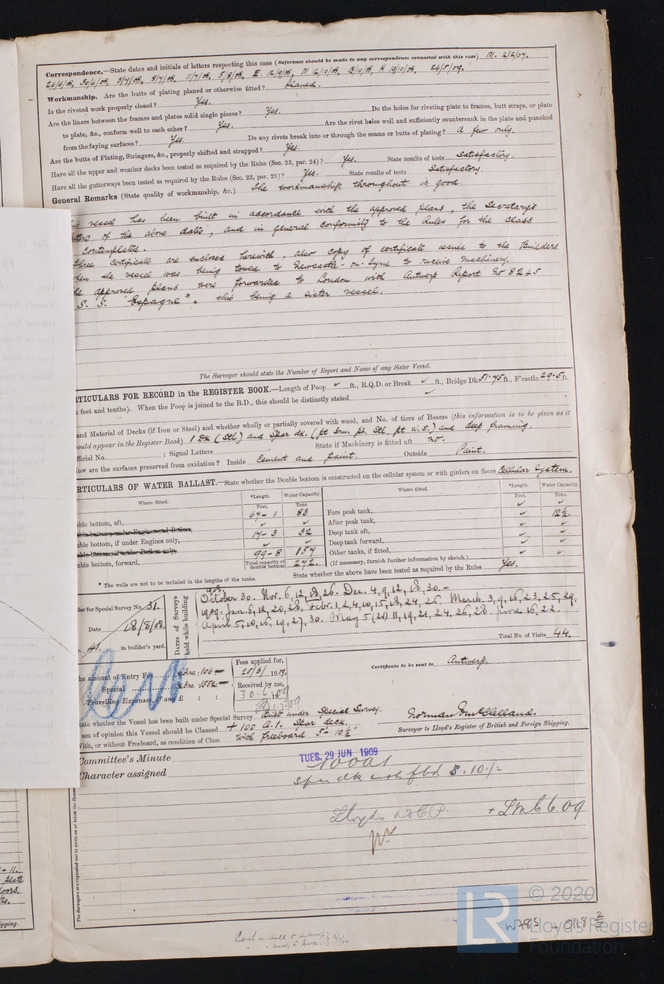 Correspondence.—State dates and initials of letters respecting this case (Reference should be made to any correspondence connected with this case) M. 2/2/07.
Workmanship. Are the butts of plating planed or otherwise fitted? planed.
Is the riveted work properly closed? Yes.
Are the liners between the frames and plates solid single pieces? Yes. Do the holes for riveting plate to frames, butt straps, or plate
to plate, &c., conform well to each other? Yes. Are the rivet holes well and sufficiently countersunk in the plate and punched
from the faying surfaces? Yes. Do any rivets break into or through the seams or butts of plating? A few only.
Are the butts of Plating, Stringers, &c., properly shifted and strapped? Yes.
Have all the upper and weather decks been tested as required by the Rules (Sec. 23, par. 24)? Yes. State results of tests Satisfactory.
Have all the gutterways been tested as required by the Rules (Sec. 23, par. 25)? Yes. State results of tests Satisfactory.
General Remarks (State quality of workmanship, &c.) The workmanship throughout is good.
vessel has been built in accordance with the approved plans, the Secretary's
of the above dates, and in general conformity to the Rules for the class
contemplated.
certificate are enclosed herewith, also copy of certificate issued to the Builders
the vessel was being towed to Newcastle-on-Tyne to receive machinery.
approved plans were forwarded to London with Antwerp Report No 8245
S.S. "Espagne". this being a sister vessel.
The Surveyor should state the Number of Report and Name of any Sister Vessel.
TICULARS FOR RECORD in the REGISTER BOOK.—Length of Poop ✓ ft., R.Q.D. or Break ✓ ft., Bridge Dk 51.75 ft., F'castle 29.5 ft.
feet and tenths). When the Poop is joined to the B.D., this should be distinctly stated
and Material of Decks (if Iron or Steel) and whether wholly or partially covered with wood, and No. of tiers of Beams (this information is to be given as it
ould appear in the Register Book) 1 Dk (Stl) and Spar dk. and deep framing.
cial No. ; Signal Letters State if Machinery is fitted aft no.
ow are the surfaces preserved from oxidation? Inside Cement and paint. Outside Paint.
ARTICULARS OF WATER BALLAST.—State whether the Double bottom is constructed on the cellular system or with girders on floors Cellular System.
Where fitted. *Length. Water Capacity. Where fitted. *Length. Water Capacity.
Feet. Tons. Feet. Tons.
ble bottoms, aft, 67-1 83 Fore peak tank, ✓ 12½
After peak tank, ✓ ✓
ble bottom, if under Engines only, 17-3 32 Deep tank aft, ✓ ✓
Deep tank forward, ✓ ✓
ble bottom, forward, 99-8 157 Other tanks, if fitted, ✓ ✓
Total capacity of double bottoms 272 (If necessary, furnish further information by sketch.)
* The wells are not to be included in the lengths of the tanks. State whether the above have been tested as required by the Rules Yes.
der for Special Survey No. 31.
Date 28/8/08.
41. in builder's yard.
Dates of Surveys held while building
October 30. Nov. 6, 12, 18, 26. Dec. 4, 9, 12, 18, 30.-
1909. Jan. 6, 12, 20, 28. Febr. 1, 2, 4, 10, 15, 18, 24, 26. March. 3, 9, 16, 23, 25, 29.
Total No. of Visits 44.
he amount of Entry Fee
Special
Travelling Expenses
Fees applied for, 1909.
Received by me,
Certificate to be sent to Antwerp.
tate whether the Vessel has been built under Special Survey Built under Special Survey.
am of opinion this Vessel should be Classed + 100 A.1. Spar deck.
With, or without Freeboard, as condition of Class with freeboard 5-10½
Surveyor to Lloyd's Register of British and Foreign Shipping.
Committee's Minute TUES. 29 JUN 1909
Character assigned 100A1
Spar dk with fbd 5.10½
Lloyds
+ LMC 6.09
© 2020
LR Lloyd's Register
Foundation